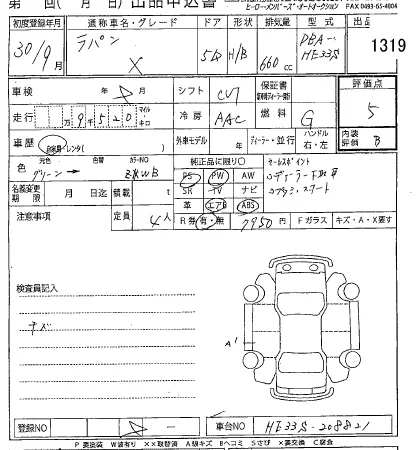 第 回( 月 日)出品申込書
ヒーローメンバーズ・オートオークション FAX 0493-65-4904
初度登録年月 通称車名・グレード ドア 形状 排気量 型式 出品
30/9月 ラパン X 5D H/B 660cc DBA- HE33S 1319
車検 年 月 シフト CVT 保証書 評価点
走行 万 9千520 マイル・キロ 冷房 AAC 燃料 G 5
車歴 自家用 レンタ( 外車モデル 年 ディーラー・並行 ハンドル 右・左 内装評価 B
色 元色 色替 カラーNO 純正品に限り○ セールスポイント
グリーン→ ZKWB PS PW AW
名義変更期限 月 日迄 積載 t SR TV ナビ プッシュスタート
注意事項 定員 4人 革 エアB ABS
R券 有・無 7950円 Fガラス キズ・A・X要す
検査員記入
キズ
A1
登録NO 車台NO HE33S-208821
P 要塗装 W波有り ××取替済 A線キズ Bヘコミ Sさび ×要交換 C腐食